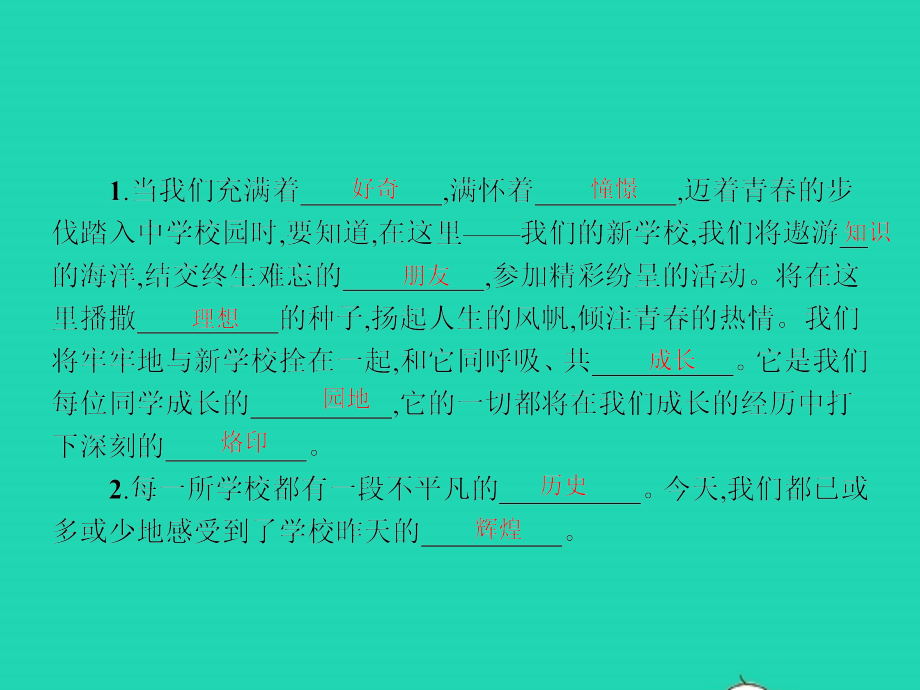 1.当我们充满着好奇,满怀着憧憬,迈着青春的步
伐踏入中学校园时,要知道,在这里——我们的新学校,我们将遨游知识
的海洋,结交终生难忘的朋友,参加精彩纷呈的活动。将在这
里播撒理想的种子,扬起人生的风帆,倾注青春的热情。我们
将牢牢地与新学校拴在一起,和它同呼吸、共成长。它是我们
每位同学成长的园地,它的一切都将在我们成长的经历中打
下深刻的烙印。
2.每一所学校都有一段不平凡的历史。今天,我们都已或
多或少地感受到了学校昨天的辉煌。